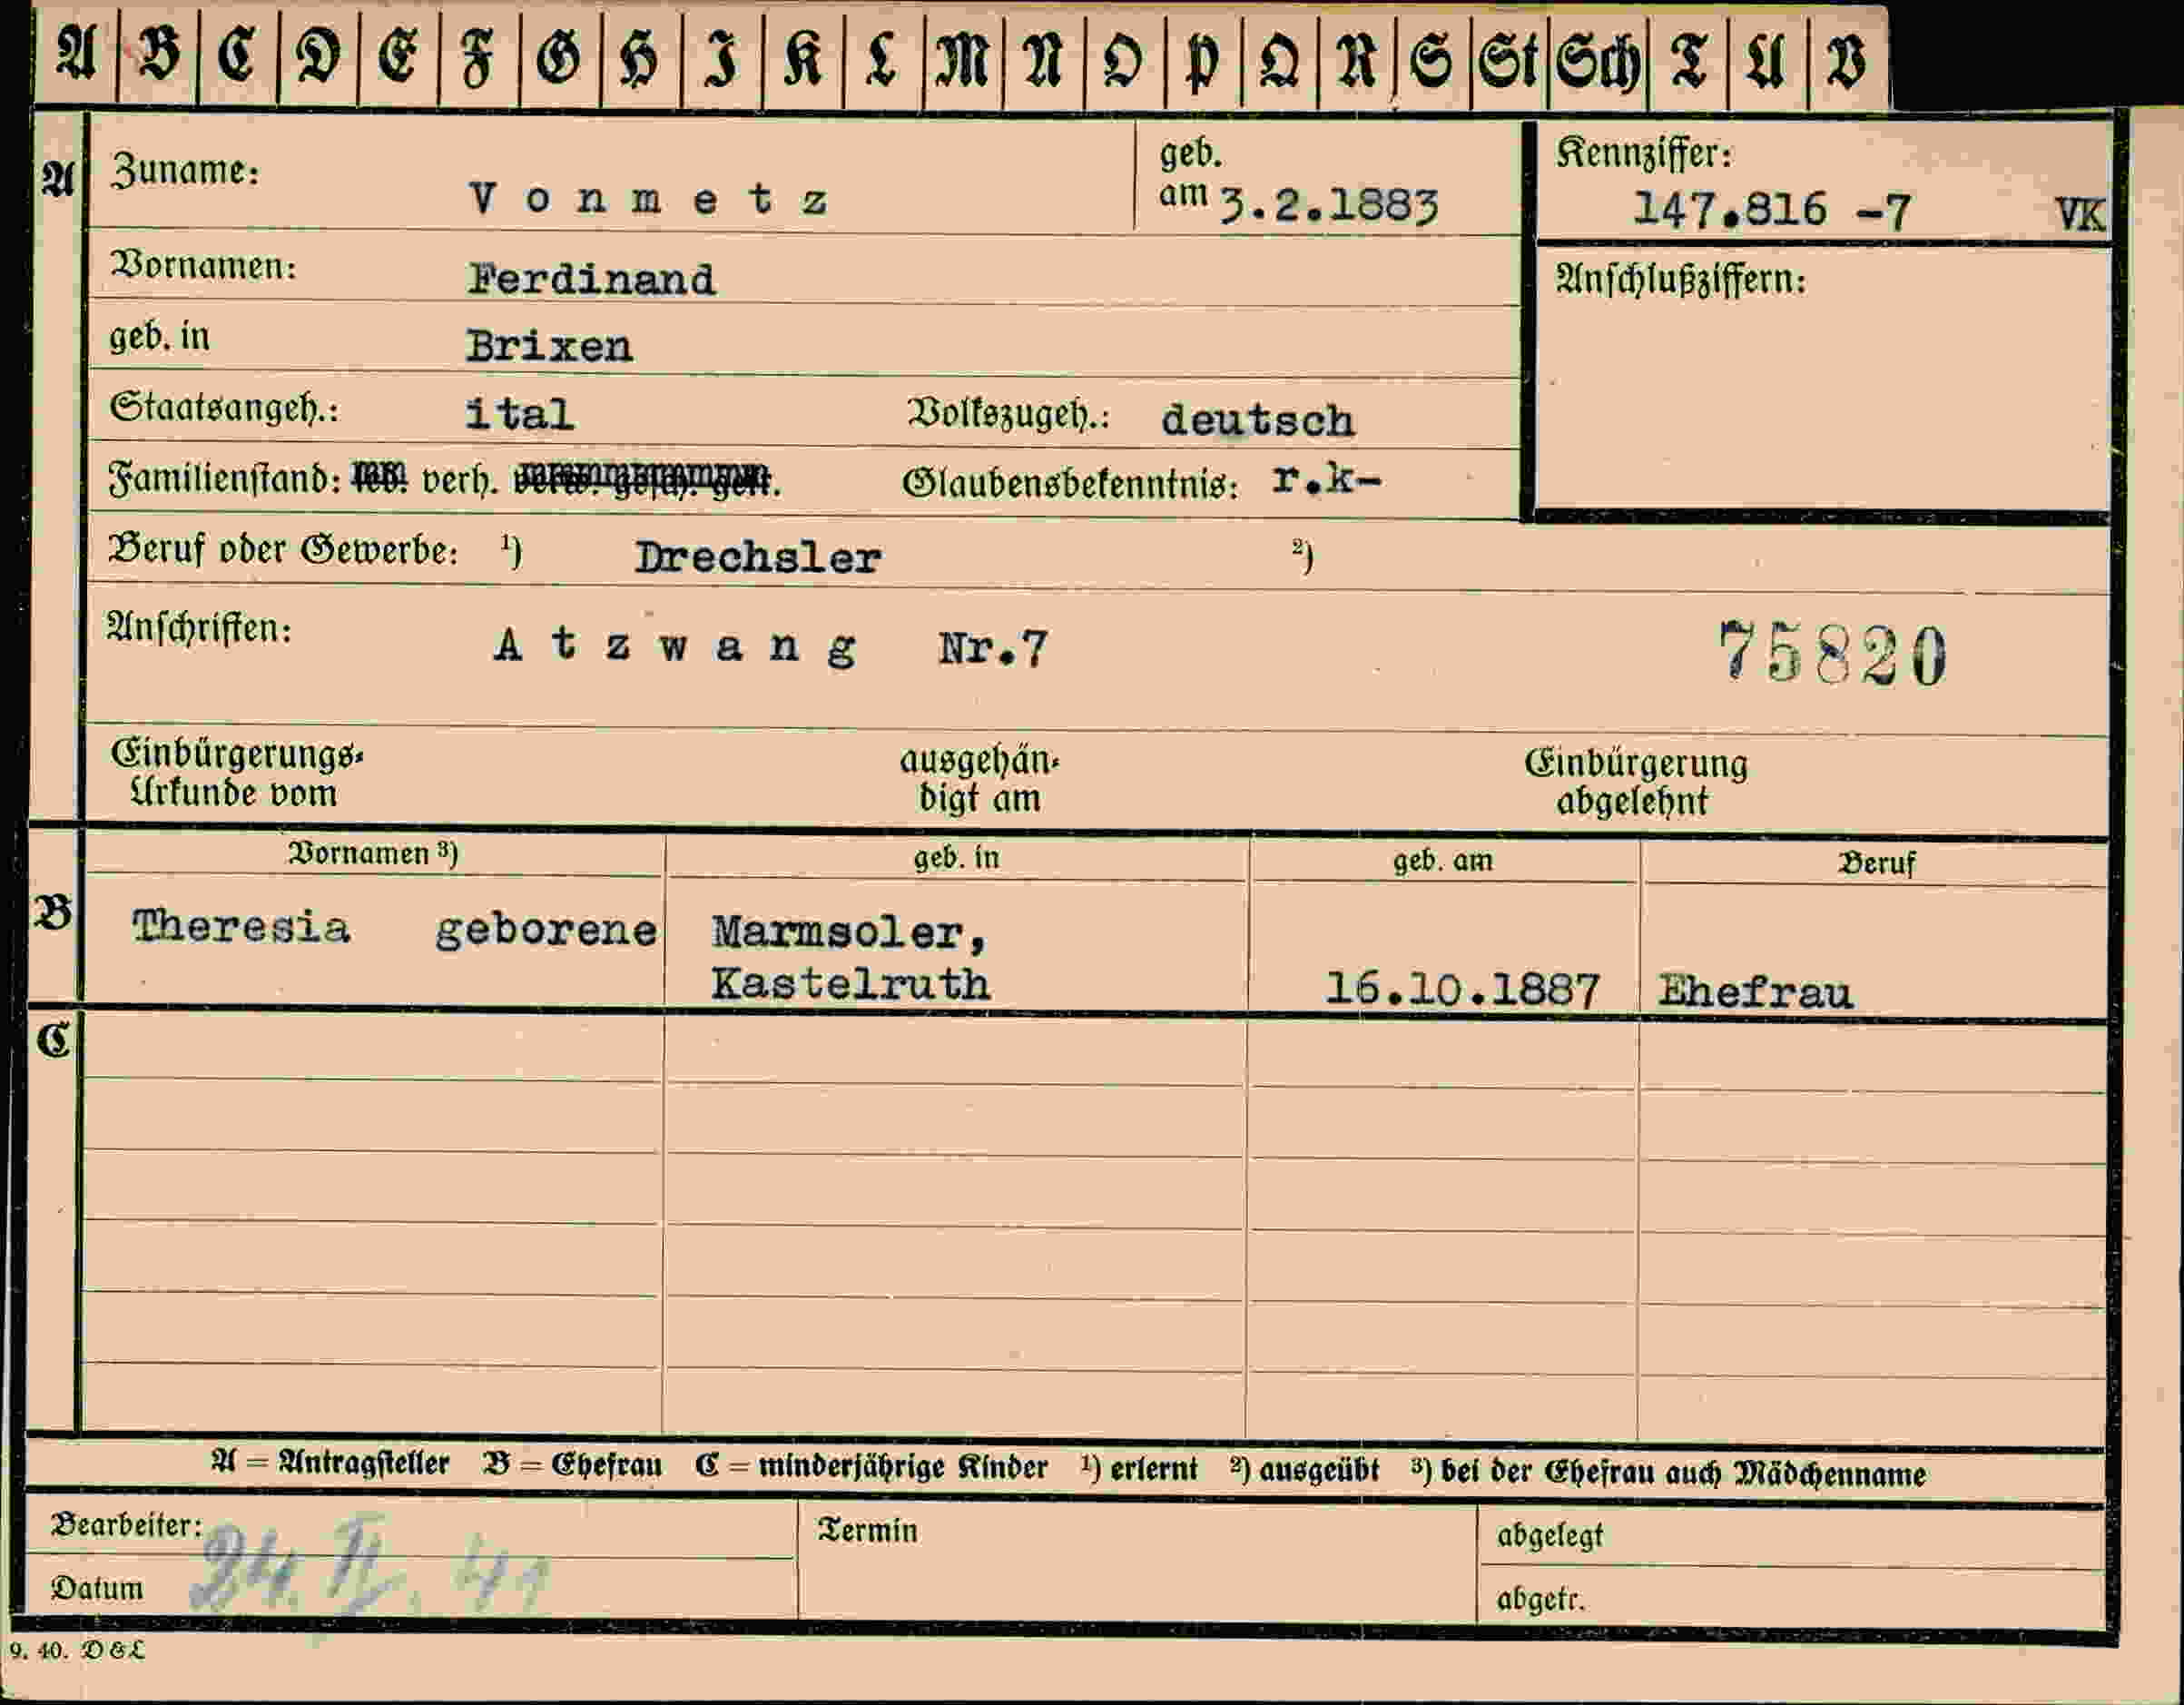 A B C D E F G H I K L M N O P Q R S St Sch T U V
A Zuname: Vonmetz geb. am 3.2.1883 Kennziffer: 147.816 -7 VK
Vornamen: Ferdinand Anschlußziffern:
geb. in Brixen
Staatsangeh.: ital Volkszugeh.: deutsch
Familienstand: led. verh. verw. gesch. getr. Glaubensbekenntnis: r.k-
Beruf oder Gewerbe: 1) Drechsler 2)
Anschriften: Atzwang Nr.7 75820
Einbürgerungs-
Urkunde vom
ausgehän-
digt am
Einbürgerung
abgelehnt
Vornamen 3) geb. in geb. am Beruf
B Theresia geborene Marmsoler,
Kastelruth 16.10.1887 Ehefrau
C
A = Antragsteller B = Ehefrau C = minderjährige Kinder 1) erlernt 2) ausgeübt 3) bei der Ehefrau auch Mädchenname
Bearbeiter: Termin abgelegt
Datum 24. 41 abgetr.
9. 40. D&L